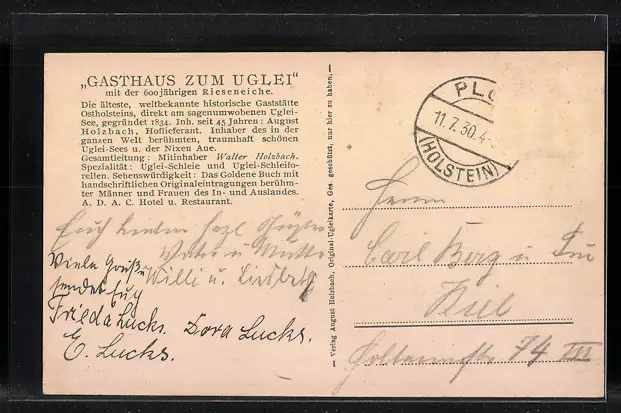 „GASTHAUS ZUM UGLEI“
mit der 600jährigen Rieseneiche.
Die älteste, weltbekannte historische Gaststätte
Ostholsteins, direkt am sagenumwobenen Uglei-
See, gegründet 1834. Inh. seit 45 Jahren: August
Holzbach, Hoflieferant. Inhaber des in der
ganzen Welt berühmten, traumhaft schönen
Uglei-Sees u. der Nixen Aue.
Gesamtleitung: Mitinhaber Walter Holzbach.
Spezialität: Uglei-Schleie und Uglei-Schleifo-
rellen. Sehenswürdigkeit: Das Goldene Buch mit
handschriftlichen Originaleintragungen berühm-
ter Männer und Frauen des In- und Auslandes.
A. D. A. C. Hotel u. Restaurant.
Vater u Mutter
Viele Grüße
Willi u.
sendet Eug
Frieda Lucks. Dora Lucks.
E. Lucks.
— Verlag August Holzbach, Original-Ugleikarte, Ges. geschützt, nur hier zu haben. —
PLÖ
11.7.30.4-
(HOLSTEIN)
Herrn
Carl u Fr
Kiel
74 III